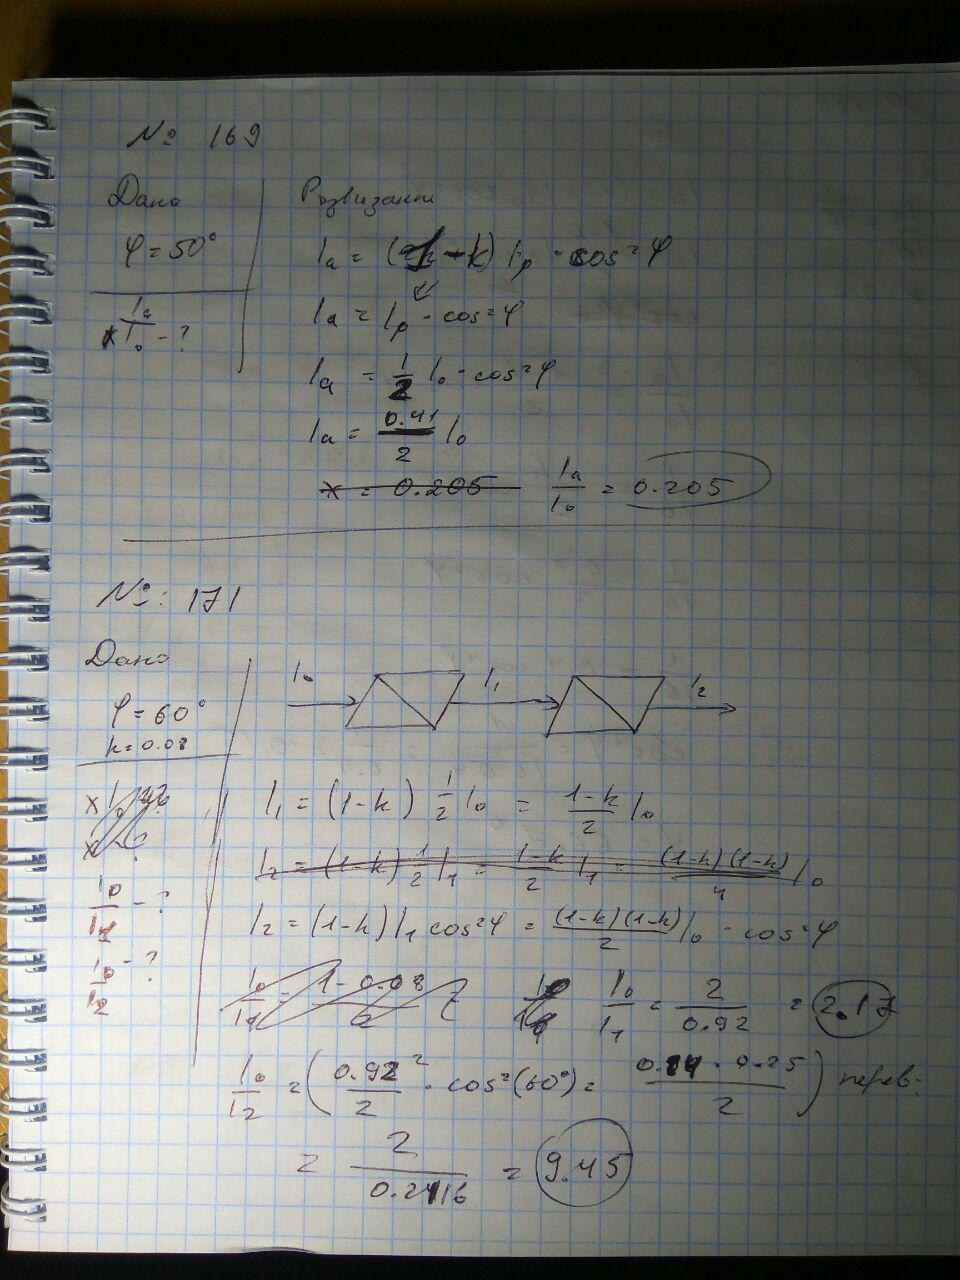 № 169
Дано
Розвязання
φ = 50°
Iₐ = (1 - k) Iₚ · cos²φ
Iₐ/I₀ - ?
Iₐ = Iₚ · cos²φ
Iₐ = 1/2 I₀ · cos²φ
Iₐ = 0.41/2 I₀
x = 0.205 Iₐ/I₀ = 0.205
№: 171
Дано
I₀ I₁ I₂
φ = 60°
k = 0.08
I₁ = (1-k) 1/2 I₀ = (1-k)/2 I₀
I₂ = (1-k) 1/2 I₁ = (1-k)/2 I₁ = (1-k)(1-k)/4 I₀
I₀/I₁ - ?
I₂ = (1-k) I₁ cos²φ = (1-k)(1-k)/2 I₀ · cos²φ
I₀/I₂ - ?
I₀/I₁ = (1-0.08)/2
I₀/I₁ = 2/0.92 = 2.17
I₀/I₂ = (0.92²/2 · cos²(60°) = 0.84 · 0.25/2) перев.
= 2/0.2116 = 9.45